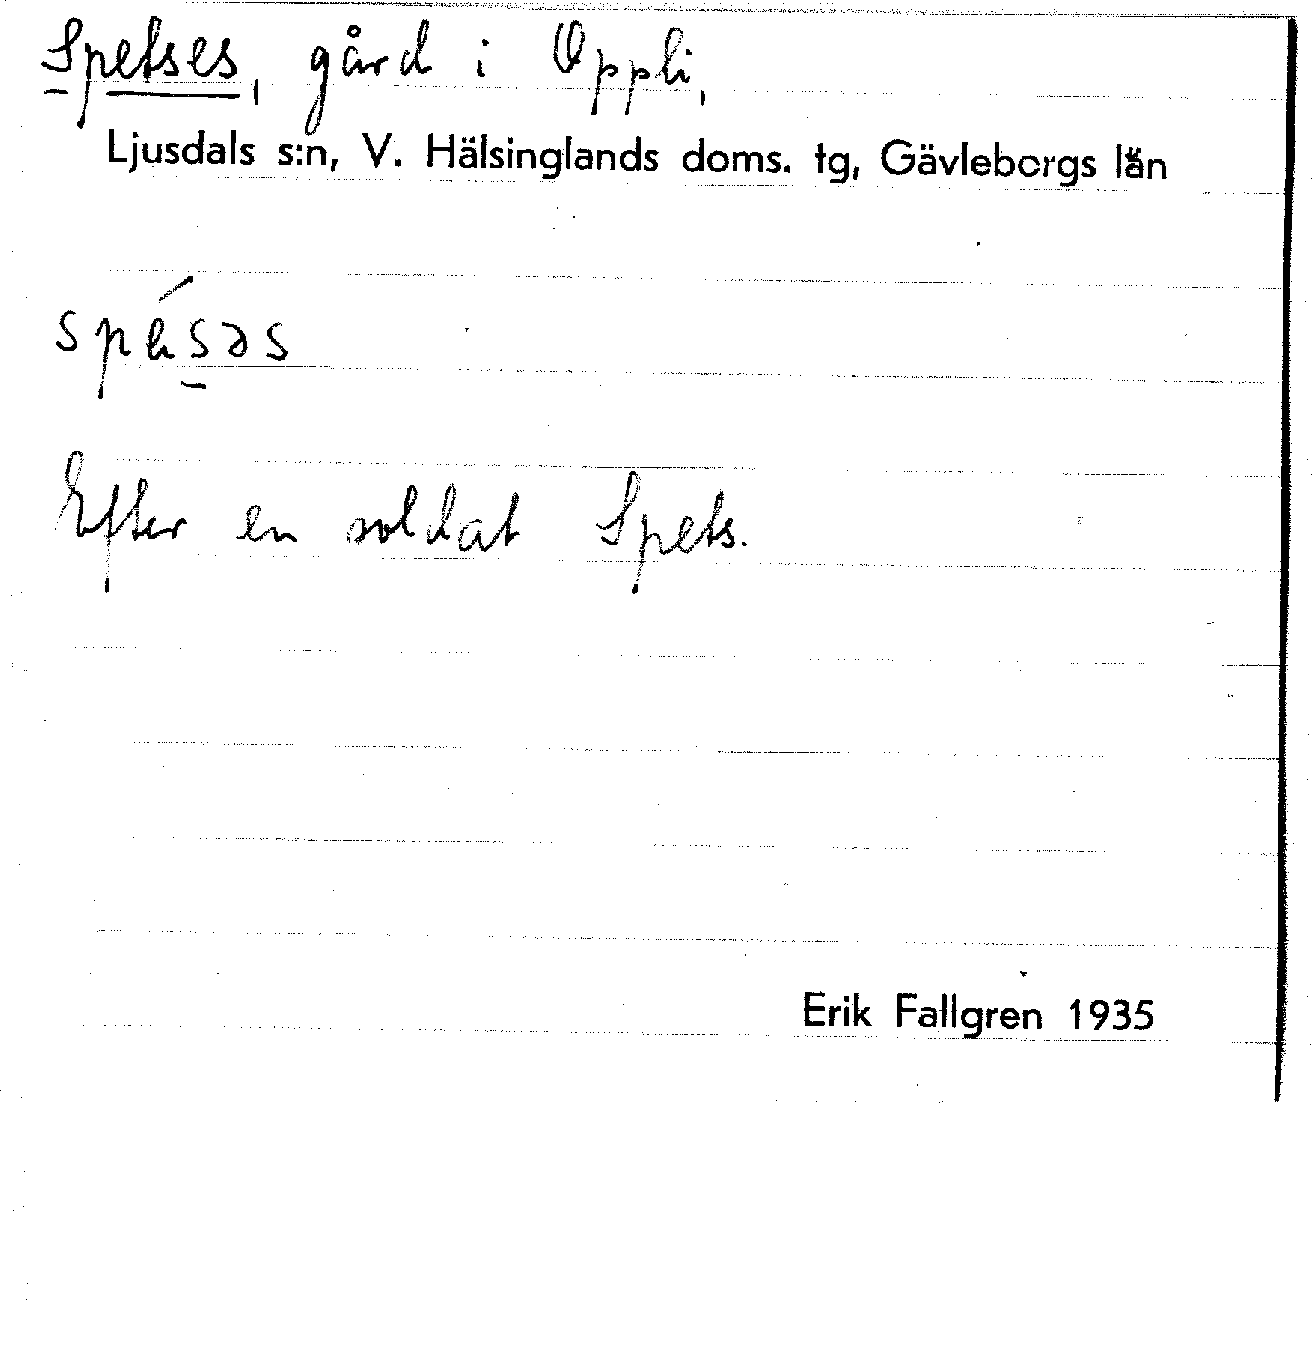 Spetses, gård i Oppli,
Ljusdals s:n, V. Hälsinglands doms. tg, Gävleborgs län
Efter en soldat Spets.
Erik Fallgren 1935